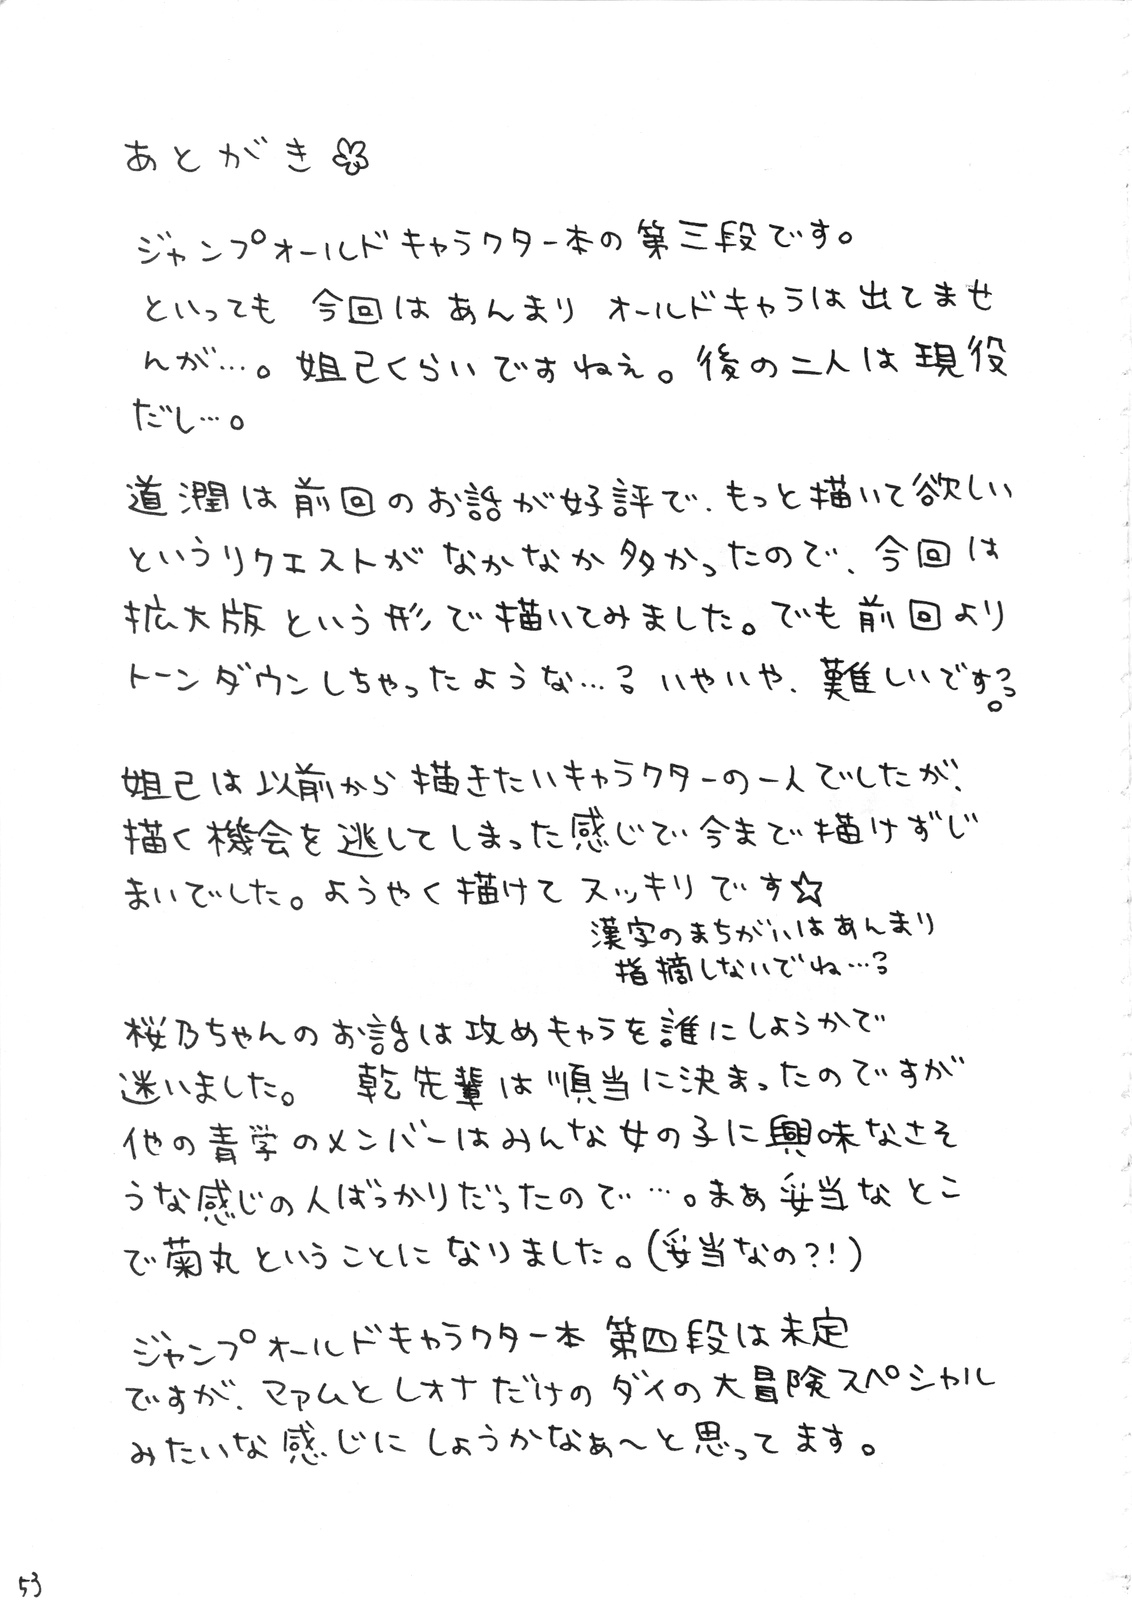 あとがき
ジャンプオールドキャラクター本の第三段です。
といっても 今回はあんまり オールドキャラは出てませ
んが…。妲己くらいですねえ。後の二人は現役
だし…。
道潤は前回のお話が好評で、もっと描いて欲しい
というリクエストが なかなか多かったので、今回は
拡大版という形で描いてみました。でも前回より
トーンダウンしちゃったような…? いやいや、難しいです。
妲己は以前から描きたいキャラクターの一人でしたが、
描く機会を逃してしまった感じで今まで描けずじ
まいでした。ようやく描けてスッキリです☆
漢字のまちがいはあんまり
指摘しないでね…?
桜乃ちゃんのお話は攻めキャラを誰にしようかで
迷いました。 乾先輩は順当に決まったのですが
他の青学のメンバーはみんな女の子に興味なさそ
うな感じの人ばっかりだったので…。まあ妥当なとこ
で菊丸ということになりました。(妥当なの?!)
ジャンプオールドキャラクター本 第四段は未定
ですが、マァムとレオナだけのダイの大冒険スペシャル
みたいな感じにしようかなぁ〜と思ってます。
53